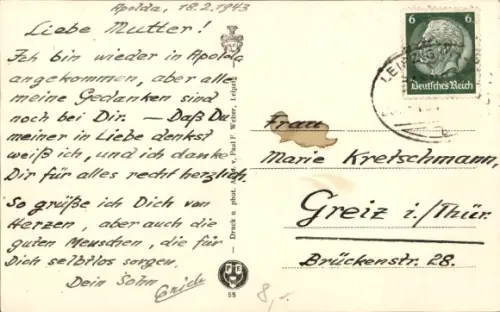 Apolda, 18.2.1943
Liebe Mutter!
Ich bin wieder in Apolda
angekommen, aber alle
meine Gedanken sind
noch bei Dir. — Daß Du
meiner in Liebe denkst
weiß ich, und ich danke
Dir für alles recht herzlich.
So grüße ich Dich von
Herzen, aber auch die
guten Menschen, die für
Dich selbstlos sorgen.
Dein Sohn
Erich
Druck u. phot. v. Paul F. Weber, Leipzig
55
8,-
6
Deutsches Reich
Frau
Marie Kretschmann,
Greiz i./Thür.
Brückenstr. 28.